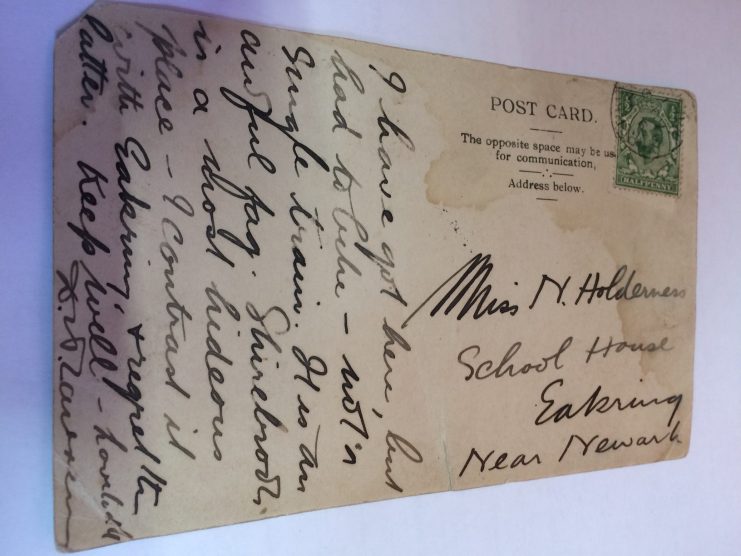 I have got here, but
had to bike – not a
single train. It is an
awful fag. Shirebrook
is a most hideous
place – I contrast it
with Eakring, & regret the
latter. Keep well –
POST CARD.
The opposite space may be us
for communication,
Address below.
HALFPENNY
Miss N. Holderness
School House
Eakring
Near Newark